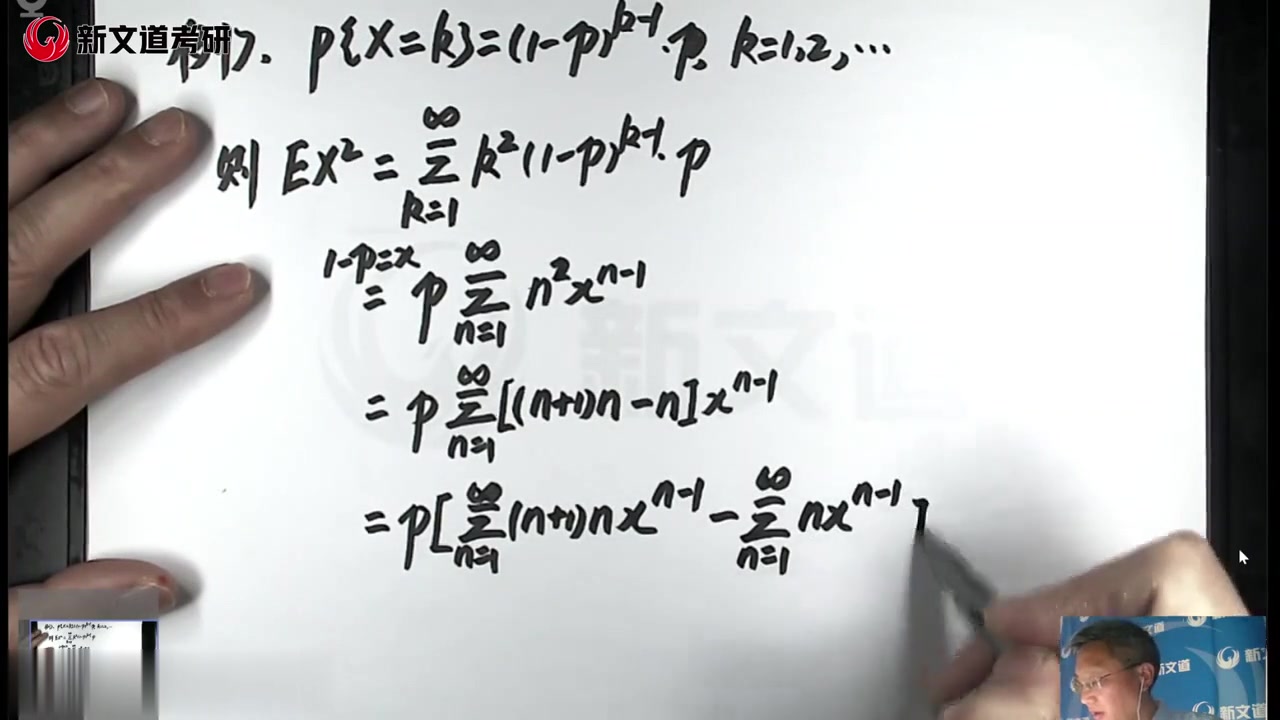 新文道考研
例7. P{X=k}=(1-p)^{k-1}·p, k=1,2,…
则 EX² = ∑_{k=1}^{∞} k²(1-p)^{k-1}·p
1-p=x
= p ∑_{n=1}^{∞} n²x^{n-1}
= p ∑_{n=1}^{∞} [(n+1)n-n]x^{n-1}
= p[∑_{n=1}^{∞} (n+1)nx^{n-1} - ∑_{n=1}^{∞} nx^{n-1}]
新文道
新文道